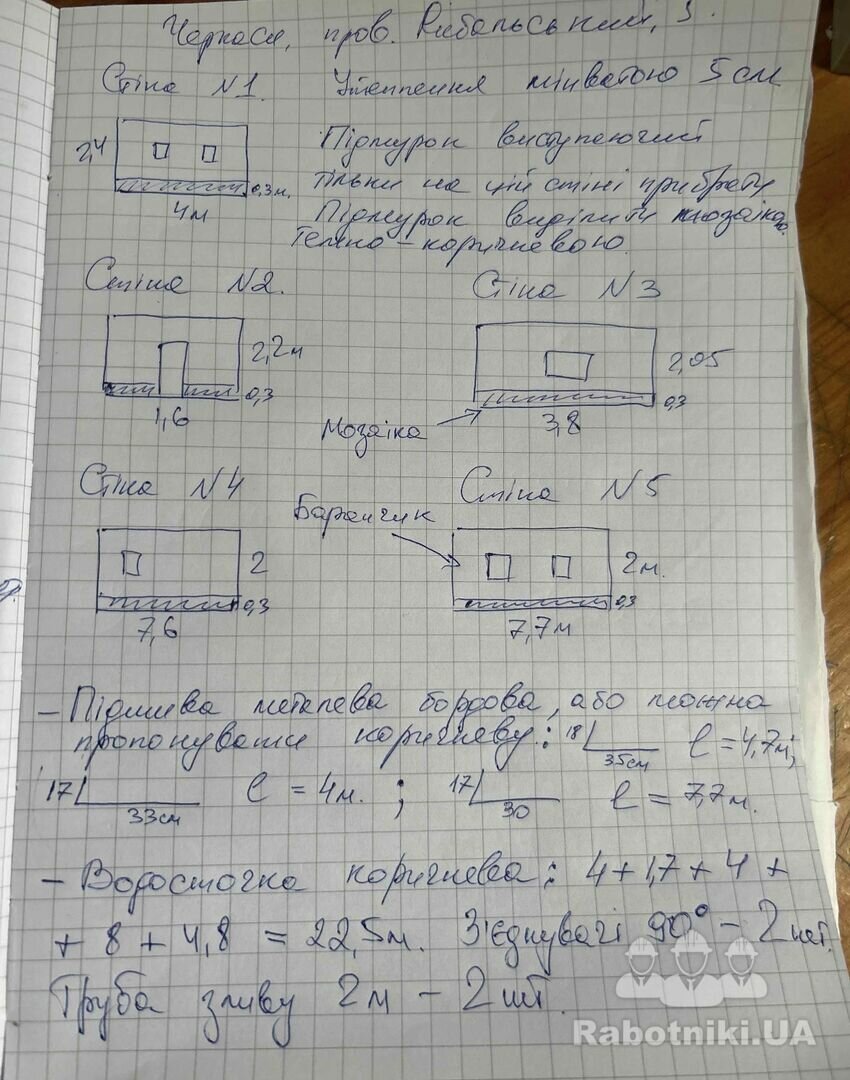 Черкаси, пров. Рибальський, 3.
Стіна N1. Утеплення мінватою 5 см
2,4
0,3м.
4м
Підмурок виступаючий
тільки на цій стіні прибрати
Підмурок виділити мозаїкою
темно-коричневою.
Стіна N2.
2,2м
0,3
1,6
Стіна N3
2,05
0,3
3,8
Мозаїка
Стіна N4
2
0,3
7,6
Баранчик
Стіна N5
2м.
0,3
7,7м
- Підшива металева бордова, або можна
пропонувати коричневу: 18 35см l = 4,7м;
17 33см l = 4м. ; 17 30 l = 7,7м.
- Водосточка коричнева: 4+1,7+4+
+ 8 + 4,8 = 22,5м. З'єднувачі 90° - 2шт.
Труба зливу 2м - 2шт.
Rabotniki.UA